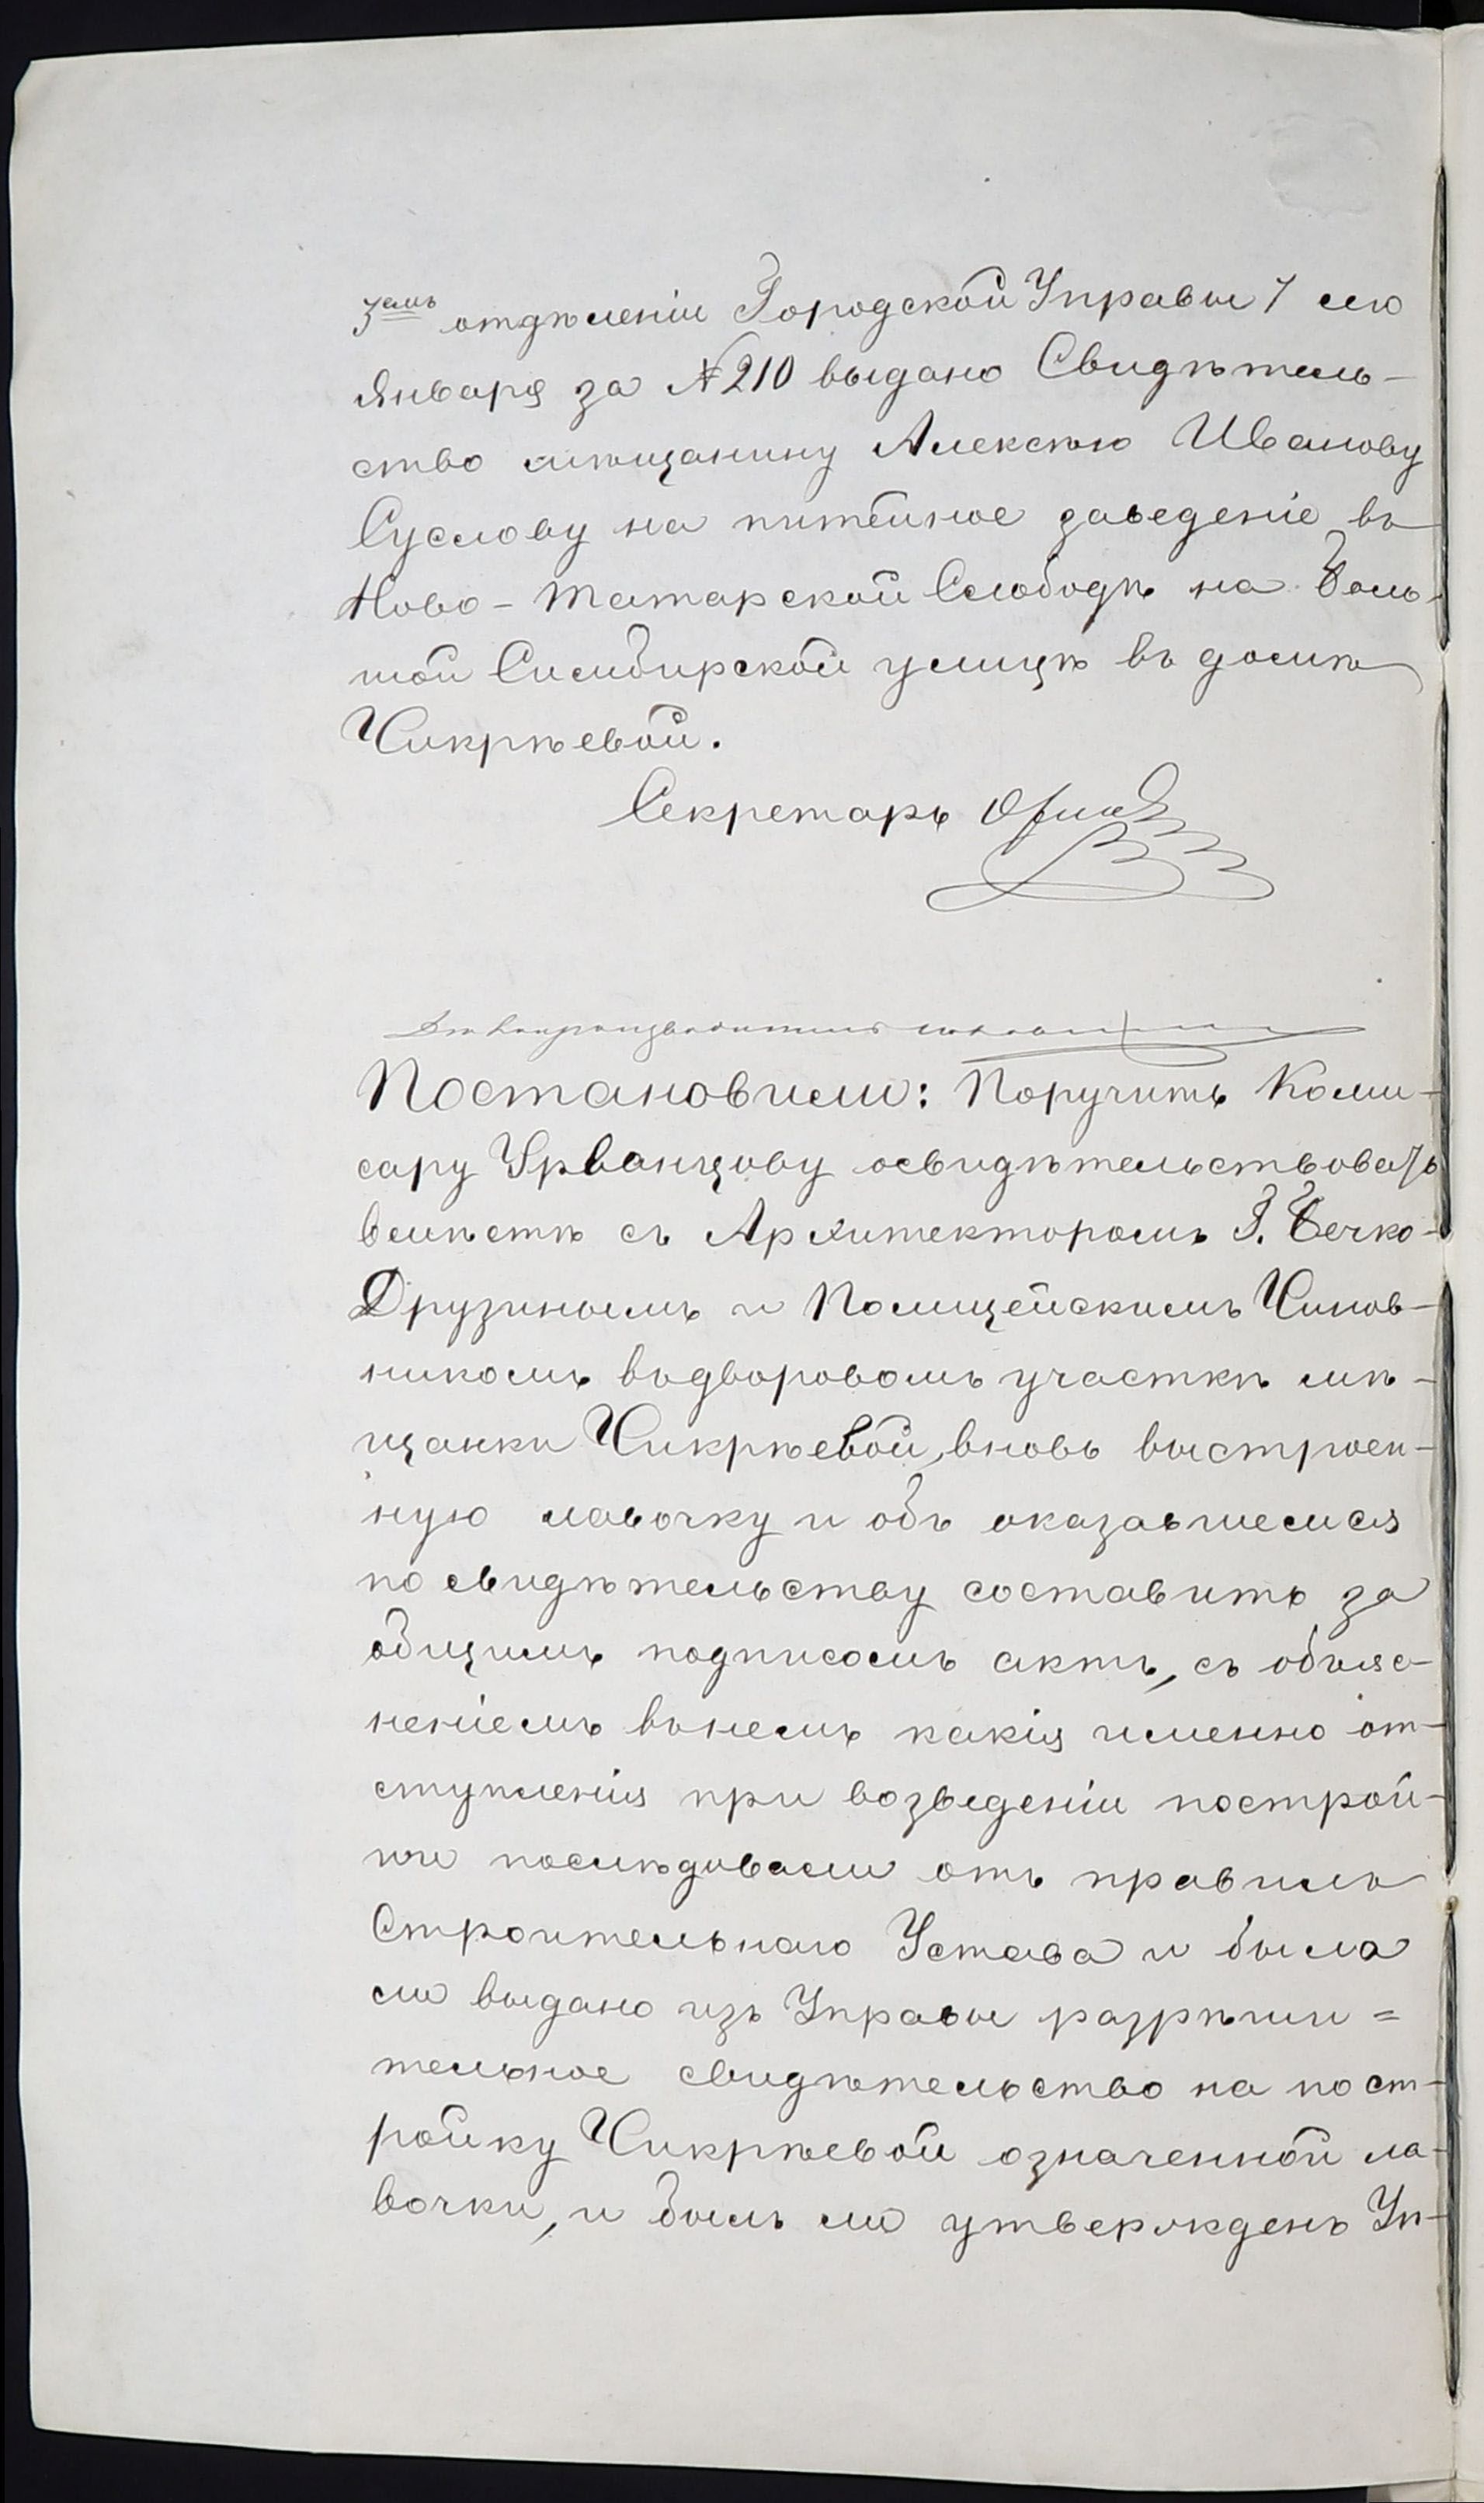 3емъ отдѣленіи Городской Управы 7 ею
Января за № 210 выдано Свидѣтель-
ство мѣщанину Алексѣю Иванову
Суслову на питейное заведеніе въ
Ново-Татарской Слободѣ на Боль-
шой Симбирской улицѣ въ домѣ
Чикрѣевой.
Секретарь
Постановили: Поручить Коми-
сару Урванцову освидѣтельствовать
вмѣстѣ съ Архитекторомъ Г. Бечко-
Друзинымъ и Полицейскимъ Чинов-
никомъ въ дворовомъ участкѣ мѣ-
щанки Чикрѣевой, вновь выстроен-
ную лавочку и объ оказавшемся
по свидѣтельству составить за
общимъ подписомъ актъ, съ объяс-
неніемъ въ немъ какія именно от-
ступленія при возведеніи построй-
ки послѣдовали отъ правилъ
Строительнаго Устава и была
ли выдано изъ Управы разрѣши=
тельное свидѣтельство на пост-
ройку Чикрѣевой означенной ла-
вочки, и былъ ли утвержденъ Уп-